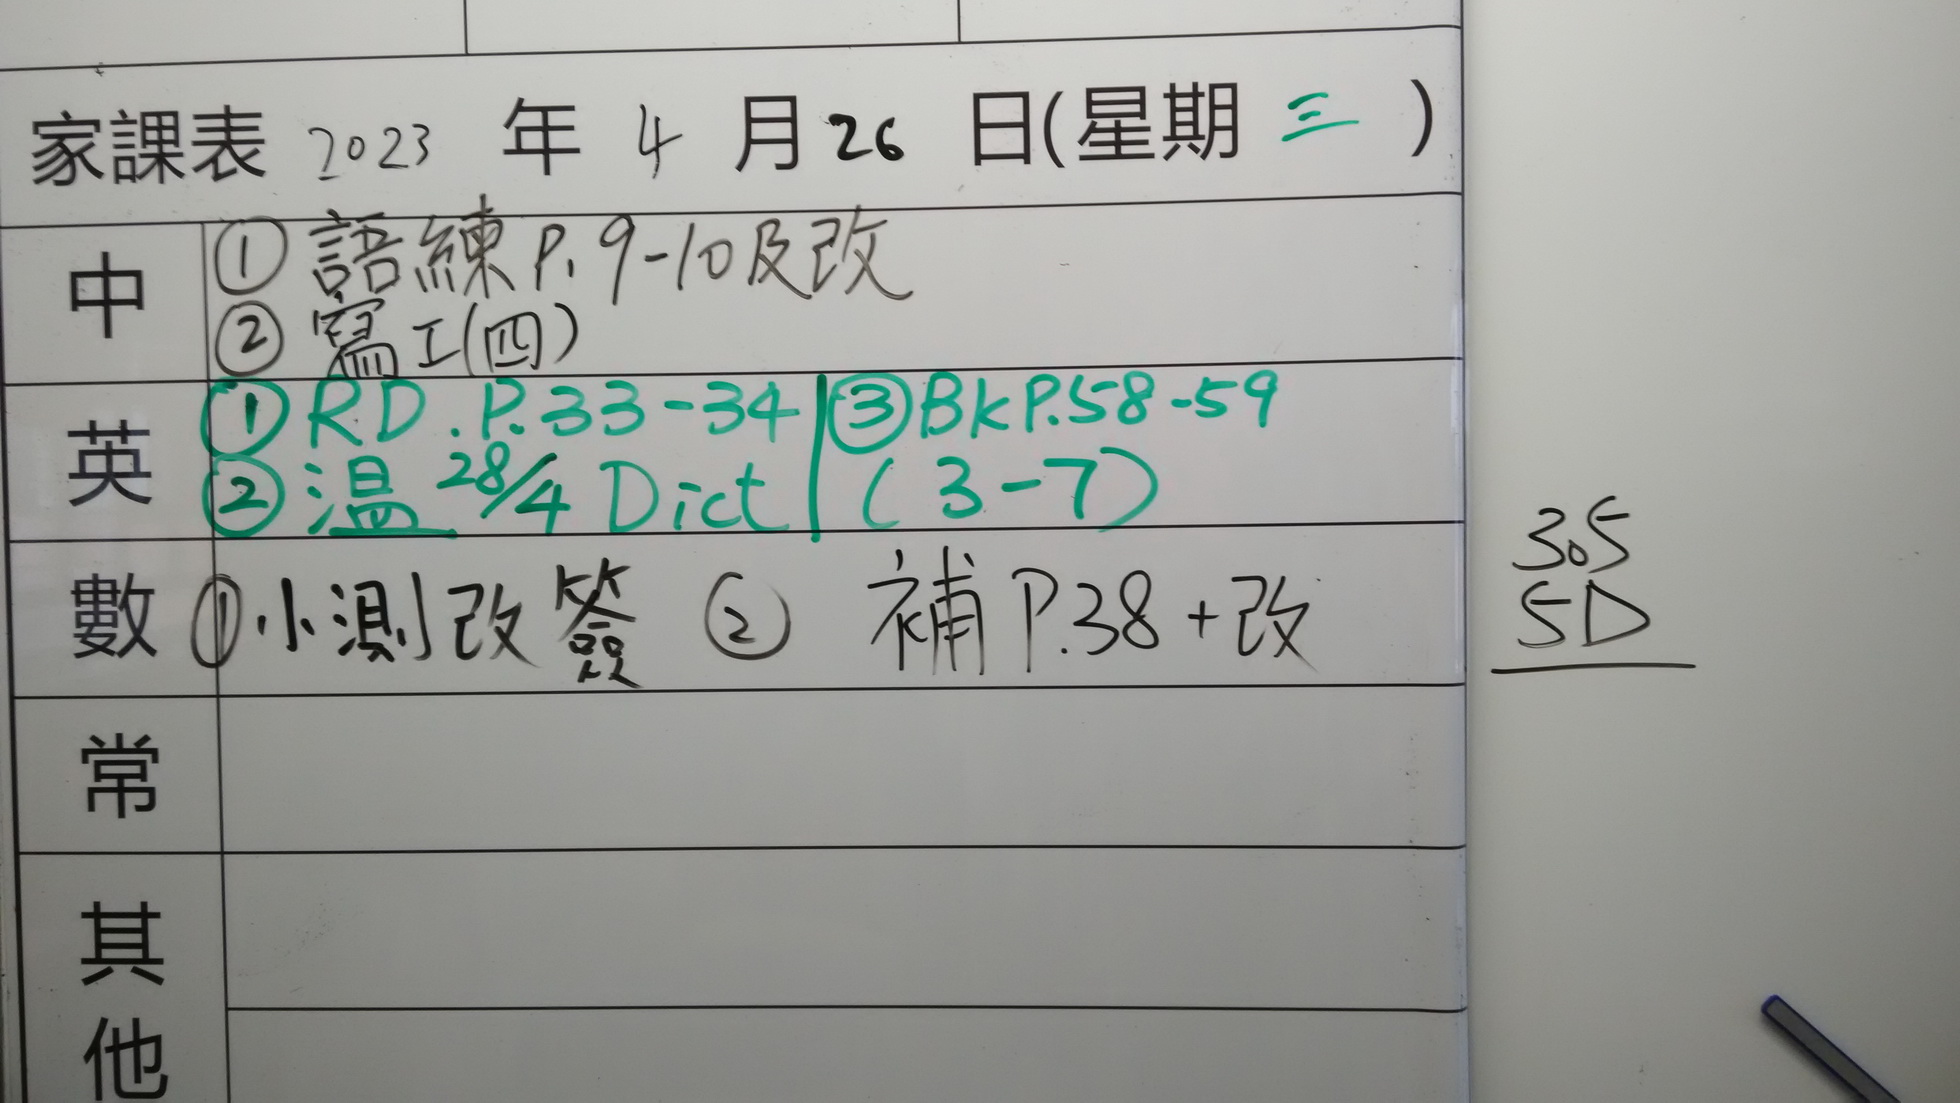 家課表 2023 年 4 月 26 日(星期 三 )
中
① 語練 P.9-10及改
② 寫工(四)
英
① RD.P.33-34
② 温 28/4 Dict
③ Bk P.58-59
(3-7)
數
① 小測改簽 ② 補 P.38 + 改
常
其他
305
5D